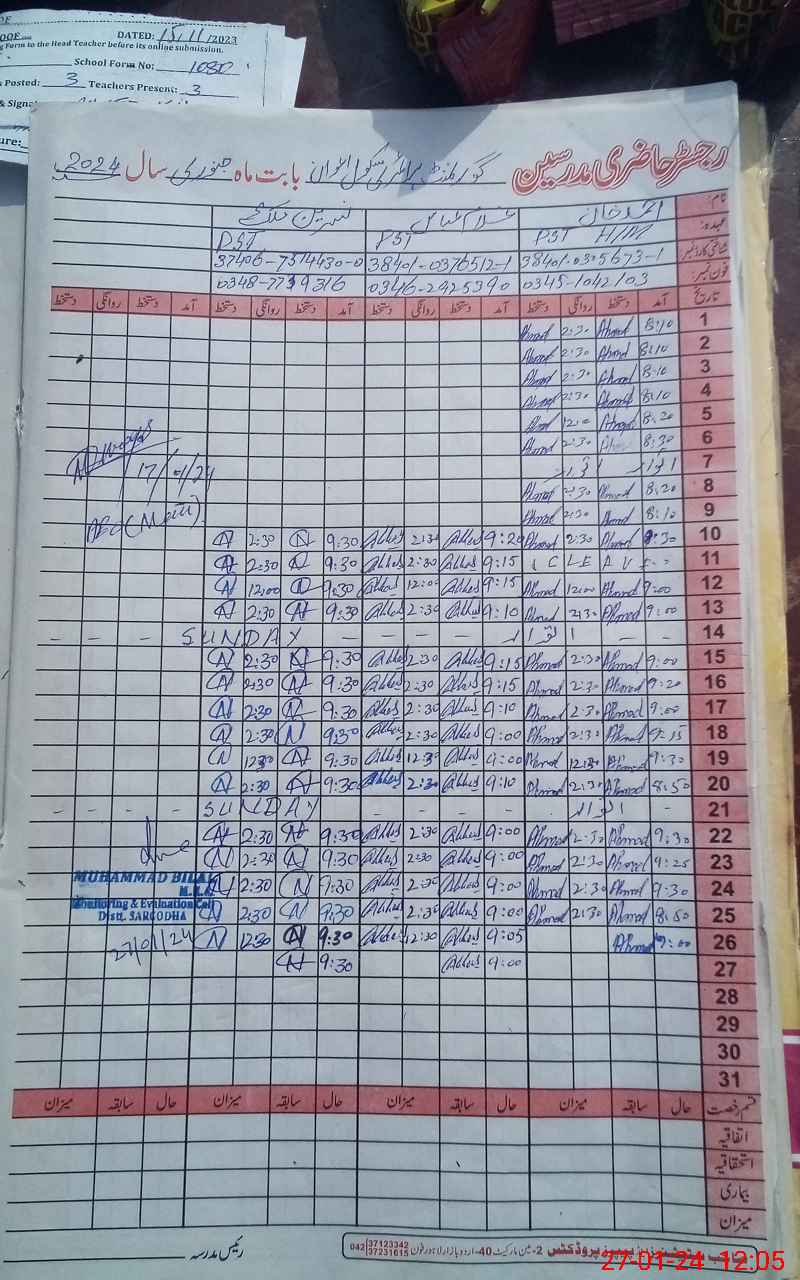 DATED: 15/11/2023
g Form to the Head Teacher before its online submission.
School Form No: 1080
Posted: 3 Teachers Present: 3
& Signa
رجسٹر حاضری مدرسین گورنمنٹ پرائمری سکول بابت ماہ جنوری سال 2024
نام: احمد خان غلام عباس
عہدہ: PST H/M PST PST
شناختی کارڈ نمبر 38401-0376512-1 37406-7514430-0
فون نمبر: 0345-1042103 0346-2925390
تاریخ آمد دستخط روانگی دستخط آمد دستخط روانگی دستخط آمد دستخط روانگی دستخط آمد دستخط روانگی دستخط
1 8:10 Ahmad 2:30 Ahmad
2 8:10 Ahmad 2:30 Ahmad
3 8:10 Ahmad 2:30 Ahmad
4 8:10 Ahmad 2:30 Ahmad
5 8:20 Ahmad 12:00 Ahmad
6 8:30 2:30 Ahmad
7 اتوار اتوار
17/01/24
8 8:20 Ahmad 2:30 Ahmad
9 8:10 Ahmad 2:30 Ahmad
10 Ahmad 2:30 Ahmad 9:20 Abbas 2:30 Abbas 9:30 N 2:30 N
11 LEAV 9:15 Abbas 2:30 Abbas 9:30 N 2:30 N
12 9:00 Ahmad 12:00 Ahmad 9:15 Abbas 12:00 Abbas 9:30 N 12:00 N
13 9:00 Ahmad 2:30 Ahmad 9:10 Abbas 2:30 Abbas 9:30 N 2:30 N
14 اتوار SUNDAY
15 9:00 Ahmad 2:30 Ahmad 9:15 Abbas 2:30 Abbas 9:30 N 2:30 N
16 9:20 Ahmad 2:30 Ahmad 9:15 Abbas 2:30 Abbas 9:30 N 2:30 N
17 9:00 Ahmad 2:30 Ahmad 9:10 Abbas 2:30 Abbas 9:30 N 2:30 N
18 Ahmad 2:30 Ahmad 9:00 Abbas 2:30 Abbas 9:30 N 2:30 N
19 9:30 Ahmad 12:30 Ahmad 9:00 Abbas 12:30 Abbas 9:30 N 12:30 N
20 8:50 Ahmad 2:30 Ahmad 9:10 Abbas 2:30 Abbas 9:30 N 2:30 N
21 اتوار SUNDAY
22 9:30 Ahmad 2:30 Ahmad 9:00 Abbas 2:30 Abbas 9:30 N 2:30 N
23 9:25 Ahmad 2:30 Ahmad 9:00 Abbas 2:30 Abbas 9:30 N 2:30 N
24 9:30 Ahmad 2:30 Ahmad 9:00 Abbas 2:30 Abbas 9:30 N 2:30 N
25 8:50 Ahmad 2:30 Ahmad 9:00 Abbas 2:30 Abbas 9:30 N 2:30 N
26 9:00 Ahmad 9:05 Abbas 12:30 Abbas 9:30 N 12:30 N
27 9:00 Abbas 9:30 N
MUHAMMAD BILAL
Monitoring & Evaluation Cell
Distt. SARGODHA
27/01/24
28
29
30
31
قسم رخصت حال سابقہ میزان حال سابقہ میزان حال سابقہ میزان حال سابقہ میزان
اتفاقیہ
استحقاقیہ
بیماری
میزان
رئیس مدرسہ
2-مین مارکیٹ 40-اردو بازار لاہور فون 042 37123342 37231615
27-01-24 12:05